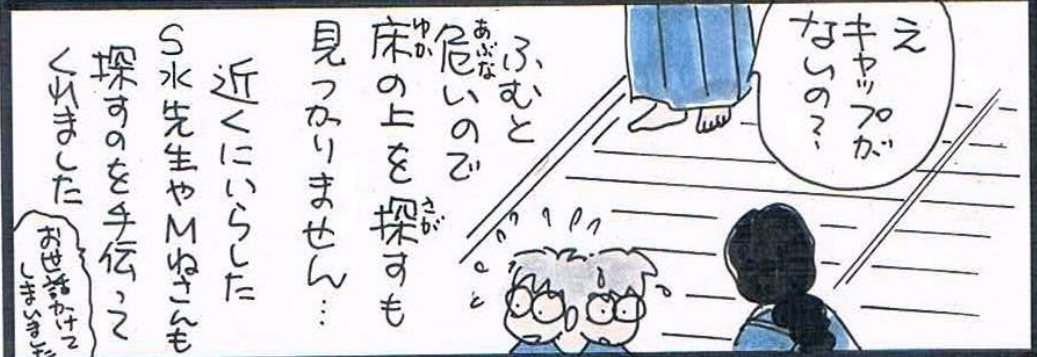 え
キャップが
ないの？
ふむと
危いので
床の上を探すも
見つかりません…
近くにいらした
S水先生やMねさんも
探すのを手伝って
くれました
お世話かけて
しまいました